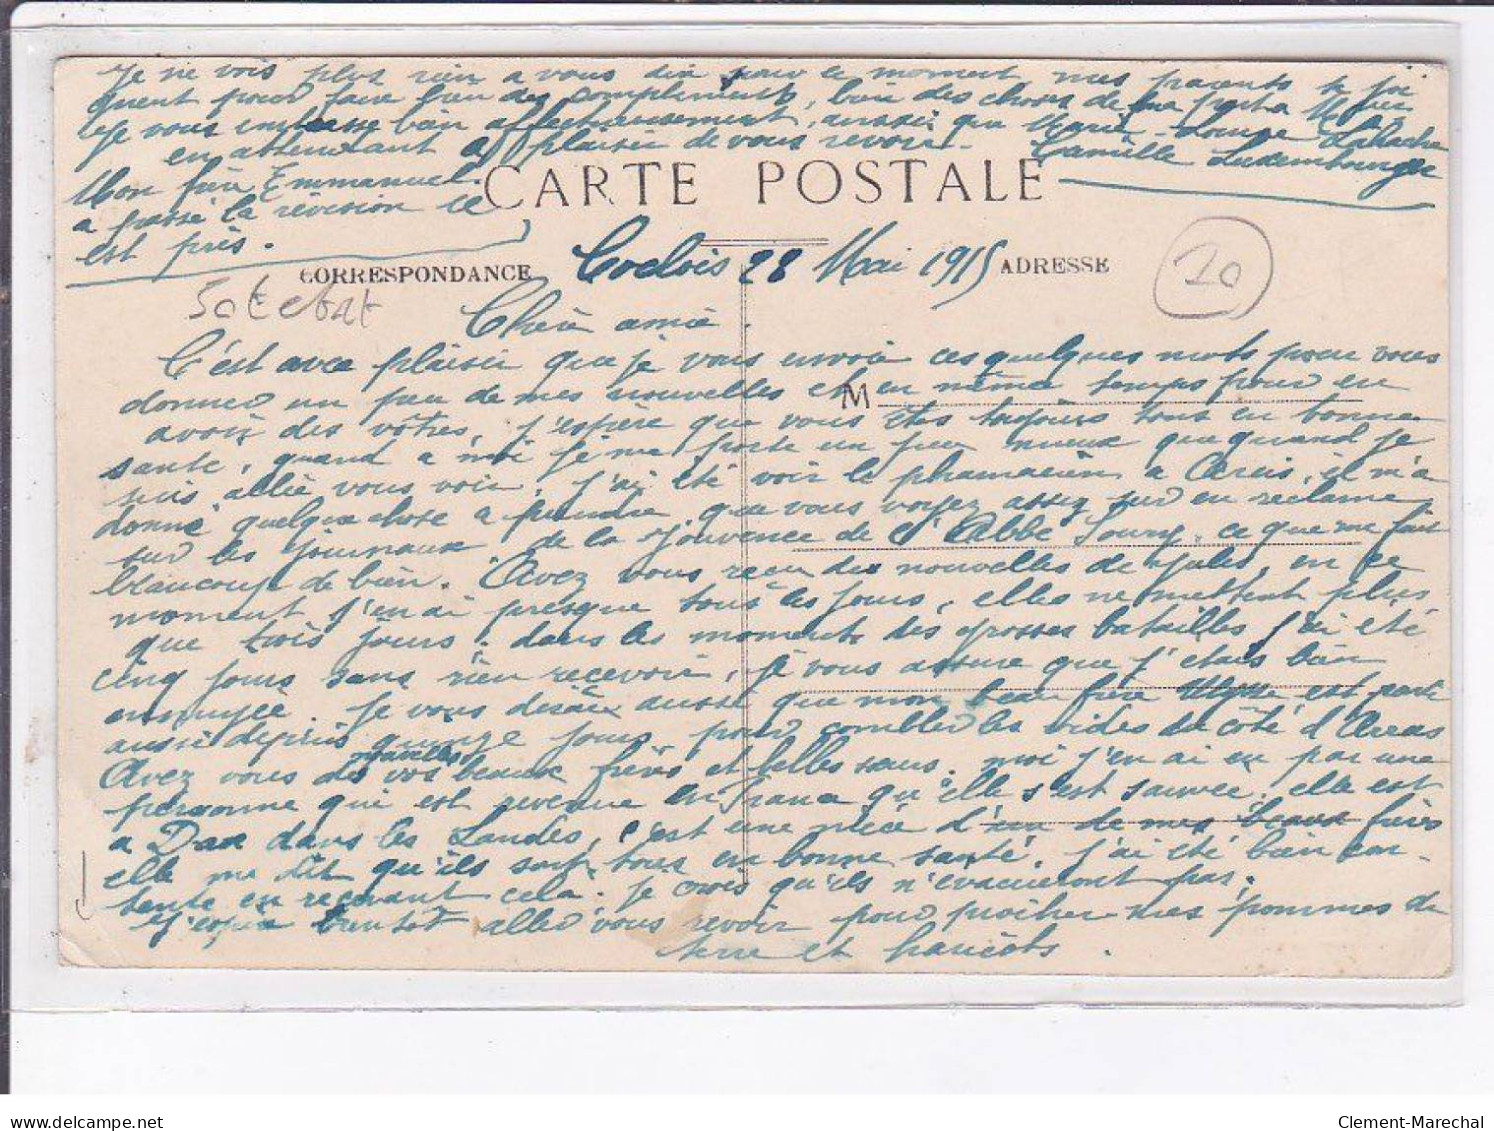 Je ne vois plus rien a vous dire pour ce moment, mes parents se joi
gnent pour faire bien des compliments, bien des choses de ma part a
Je vous embrasse bien affectueusement, aussi que Marie-Louise
en attendant le plaisir de vous revoir. Camille Luxembourge
Mon frère Emmanuel
a passé la révision il
est pris.
CARTE POSTALE
CORRESPONDANCE
ADRESSE
Coclois 28 Mai 1915
20
Chère amie.
C'est avec plaisir que je vous envoie ces quelques mots pour vous
donner un peu de mes nouvelles et en même temps pour en
M
avoir des vôtres, j'espère que vous êtes toujours tous en bonne
santé, quand a moi je me porte un peu mieux que quand je
suis allée vous voir. J'ai été voir le pharmacien a Arcis, il m'a
donné quelque chose a prendre que vous voyez assez sur en reclame
sur les journaux, de la Jouvence de l'Abbé Soury, ce que me fait
beaucoup de bien. Avez vous reçu des nouvelles de Jules, en ce
moment j'en ai presque tous les jours, elles ne mettent plus
que trois jours. dans les moments des grosses batailles j'ai été
cinq jours sans rien recevoir, je vous assure que j'étais bien
ennuyée. Je vous dirai aussi que mon beau frère Ulysse est parti
aussi depuis quinze jours pour combler les vides du côté d'Arras
Avez vous des nouvelles vos beaux frères et belles sœurs. moi j'en ai eu par une
personne qui est revenue en France qu'elle s'est sauvée. elle est
a Dax dans les Landes, c'est une nièce d'un de mes beaux frères
elle me dit qu'ils sont tous en bonne santé. j'ai été bien con-
tente en recevant cela. je crois qu'ils n'évacueront pas.
J'espère bientôt aller vous revoir pour piocher mes pommes de
terre et haricots.
Clement-Marechal
delcampe.net